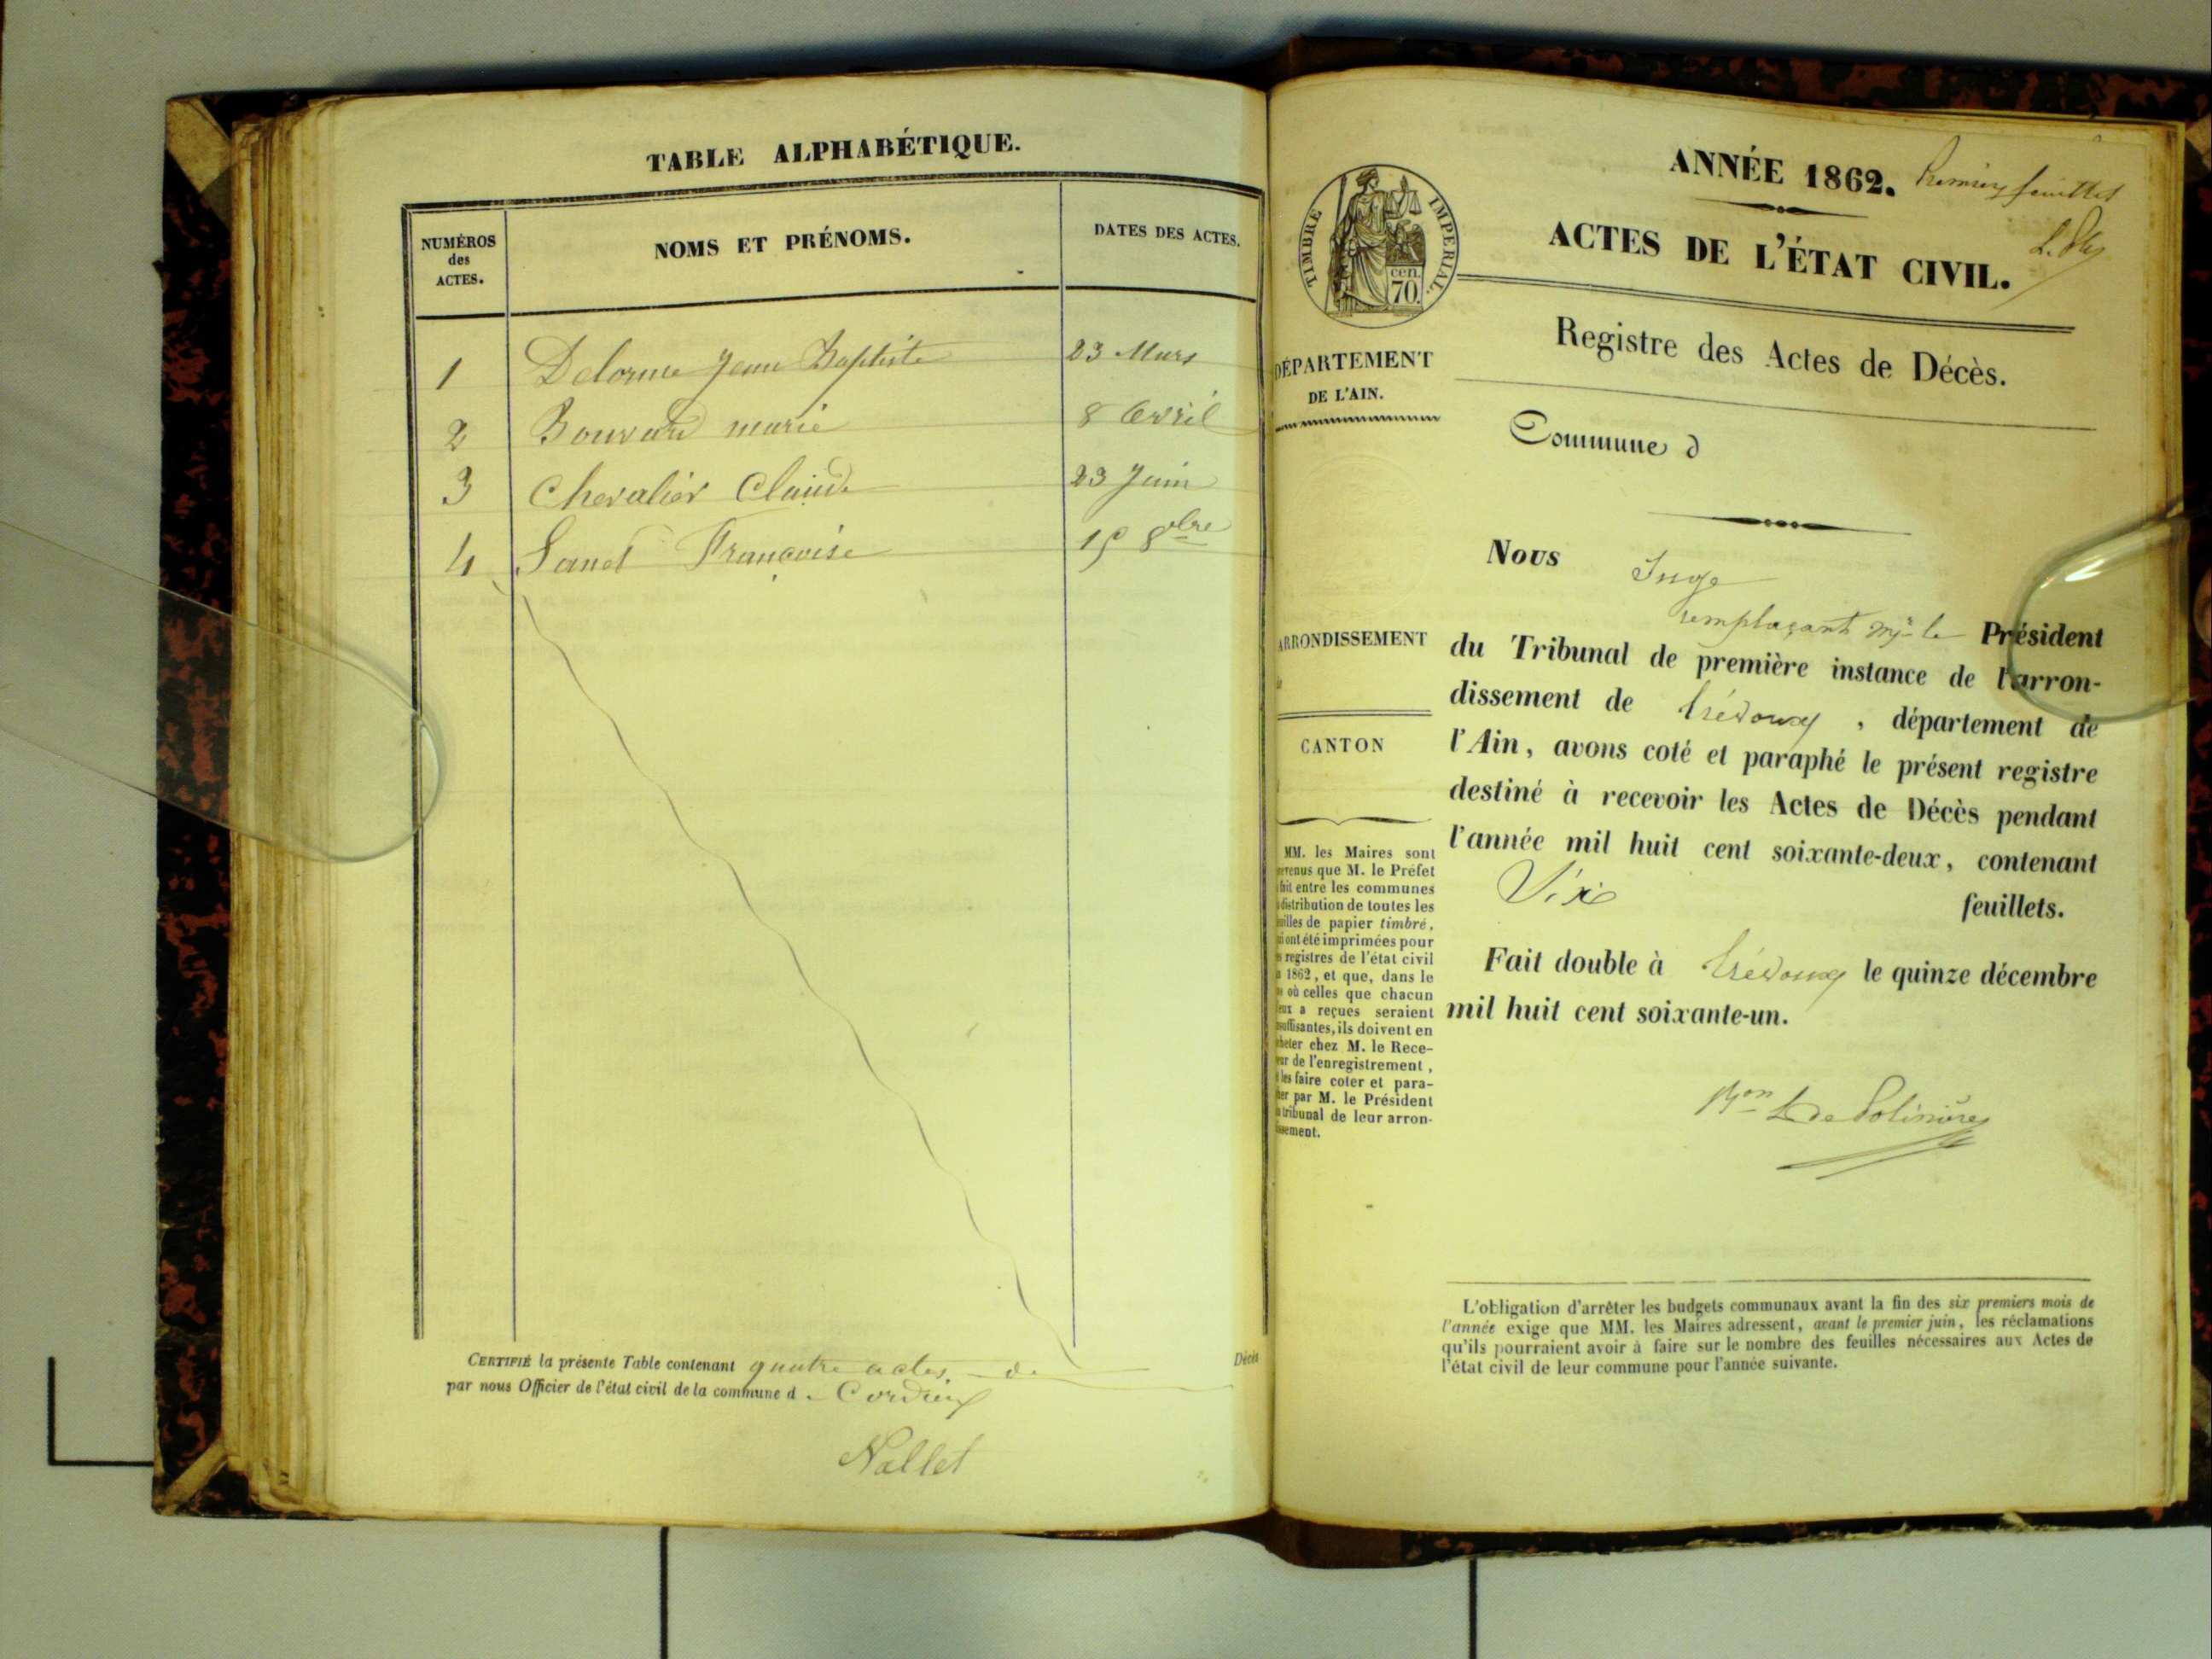 TABLE ALPHABÉTIQUE.
NUMÉROS
des
ACTES.
NOMS ET PRÉNOMS.
DATES DES ACTES.
1 Delorme Jean Baptiste 23 Mars
2 Bouvard marie 8 Avril
3 Chevalier Claude 23 Juin
4 Françoise 8bre
CERTIFIÉ la présente Table contenant quatre actes de Décès
par nous Officier de l'état civil de la commune d e Cordieux
Nallet
ANNÉE 1862. Premier feuillet
ACTES DE L'ÉTAT CIVIL.
TIMBRE IMPERIAL
cen.
70.
Registre des Actes de Décès.
DÉPARTEMENT
DE L'AIN.
Commune d
Nous Juge
remplaçant Mr le Président
ARRONDISSEMENT
du Tribunal de première instance de l'arron-
dissement de Trévoux, département de
CANTON
l'Ain, avons coté et paraphé le présent registre
destiné à recevoir les Actes de Décès pendant
l'année mil huit cent soixante-deux, contenant
Six feuillets.
Fait double à Trévoux le quinze décembre
mil huit cent soixante-un.
Bon L de Polinière
MM. les Maires sont
que M. le Préfet
fait entre les communes
distribution de toutes les
de papier timbré,
ont été imprimées pour
registres de l'état civil
1862, et que, dans le
où celles que chacun
a reçues seraient
ils doivent en
chez M. le Rece-
de l'enregistrement,
les faire coter et para-
par M. le Président
tribunal de leur arron-
L'obligation d'arrêter les budgets communaux avant la fin des six premiers mois de
l'année exige que MM. les Maires adressent, avant le premier juin, les réclamations
qu'ils pourraient avoir à faire sur le nombre des feuilles nécessaires aux Actes de
l'état civil de leur commune pour l'année suivante.